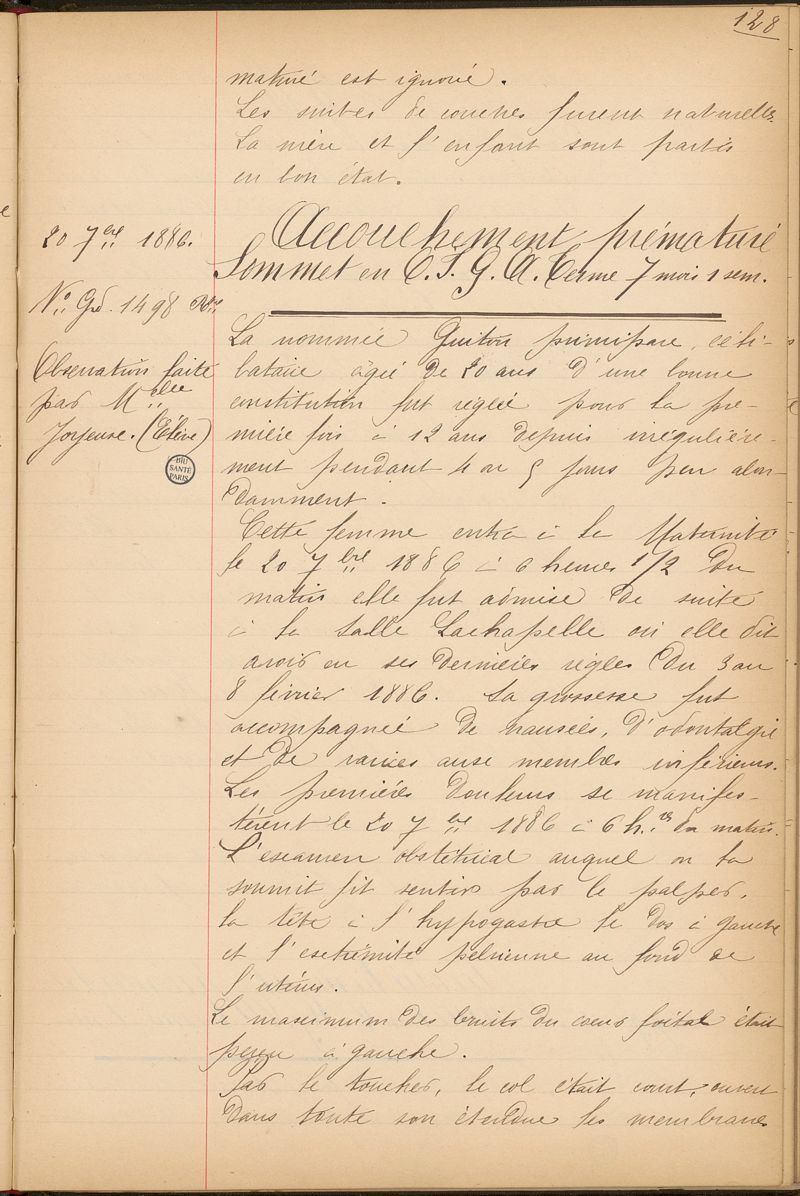 128
maturé est ignoré.
Les suites de couches furent naturelles.
La mère et l'enfant sont partis
en bon état.
20 7bre 1886.
Accouchement prématuré
Sommet en O.I.G.A. Terme 7 mois 1 sem.
No Gd. 1498
Observation faite
par Melle
Joyeuse. (Elève)
BIU
SANTÉ
PARIS
La nommée Guiton primipare, céli-
bataire âgée de 20 ans d'une bonne
constitution fut reglée pour la pre-
mière fois à 12 ans depuis irrégulière-
ment pendant 4 ou 5 jours peu abon-
damment.
Cette femme entra à la Maternité
le 20 7bre 1886 à 6 heures 1/2 du
matin elle fut admise de suite
à la salle Lachapelle où elle dit
avoir eu ses dernières règles du 3 au
8 février 1886. Sa grossesse fut
accompagnée de nausées, d'odontalgie
et de varices aux membres inférieurs.
Les premières douleurs se manifes-
tèrent le 20 7bre 1886 à 6 h.res du matin.
L'examen obstétrical auquel on la
soumit fit sentir par le palper,
la tête à l'hypogastre le dos à gauche
et l'extrémité pelvienne au fond de
l'utérus.
Le maximum des bruits du coeur foetal était
perçu à gauche.
Par le toucher, le col était court, ouvert
dans toute son étendue les membranes